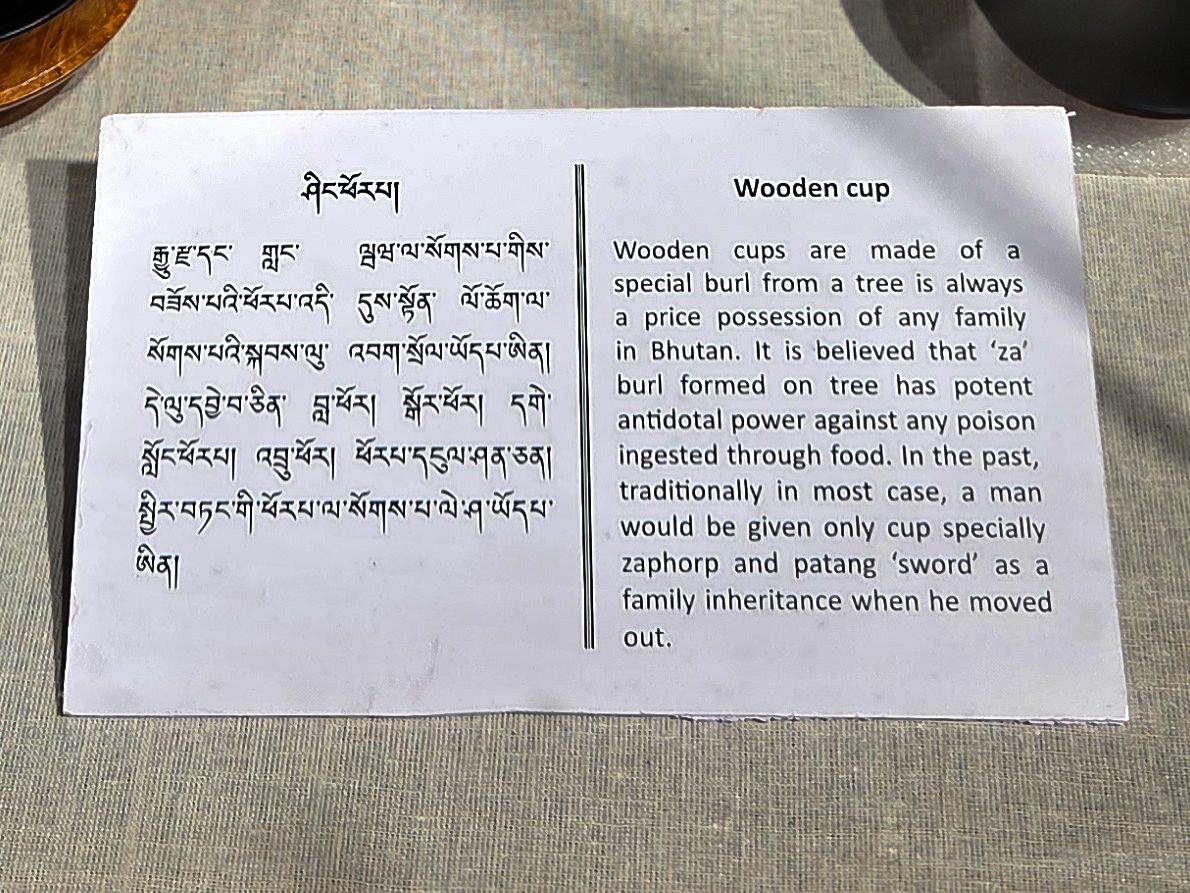 ཤིང་ཕོརཔ།
རྒྱུ་རྫ་དང་ གླང་ ལྦཝ་ལ་སོགས་པ་གིས་
བཟོས་པའི་ཕོརཔ་འདི་ དུས་སྟོན་ ལོ་ཆོག་ལ་
སོགས་པའི་སྐབས་ལུ་ འབག་སྲོལ་ཡོདཔ་ཨིན།
དེ་ལུ་དབྱེ་བ་ཅིན་ བླ་ཕོར། སྒོར་ཕོར། དགེ་
སློང་ཕོརཔ། འབྲུ་ཕོར། ཕོརཔ་དངུལ་ཤན་ཅན།
སྤྱིར་བཏང་གི་ཕོརཔ་ལ་སོགས་པ་ལེ་ཤ་ཡོདཔ་
ཨིན།
Wooden cup
Wooden cups are made of a
special burl from a tree is always
a price possession of any family
in Bhutan. It is believed that ‘za’
burl formed on tree has potent
antidotal power against any poison
ingested through food. In the past,
traditionally in most case, a man
would be given only cup specially
zaphorp and patang ‘sword’ as a
family inheritance when he moved
out.